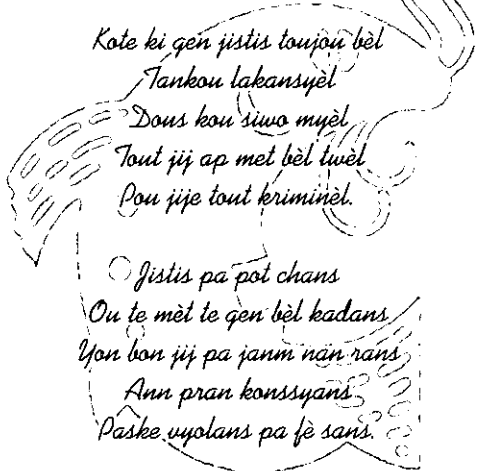 Kote ki gen jistis toujou bèl
Tankou lakansyèl
Dous kou siwo myèl
Tout jij ap met bèl twèl
Pou jije tout kriminèl.
Jistis pa pot chans
Ou te mèt te gen bèl kadans
Yon bon jij pa janm nan rans
Ann pran konssyans
Paske vyolans pa fè sans.